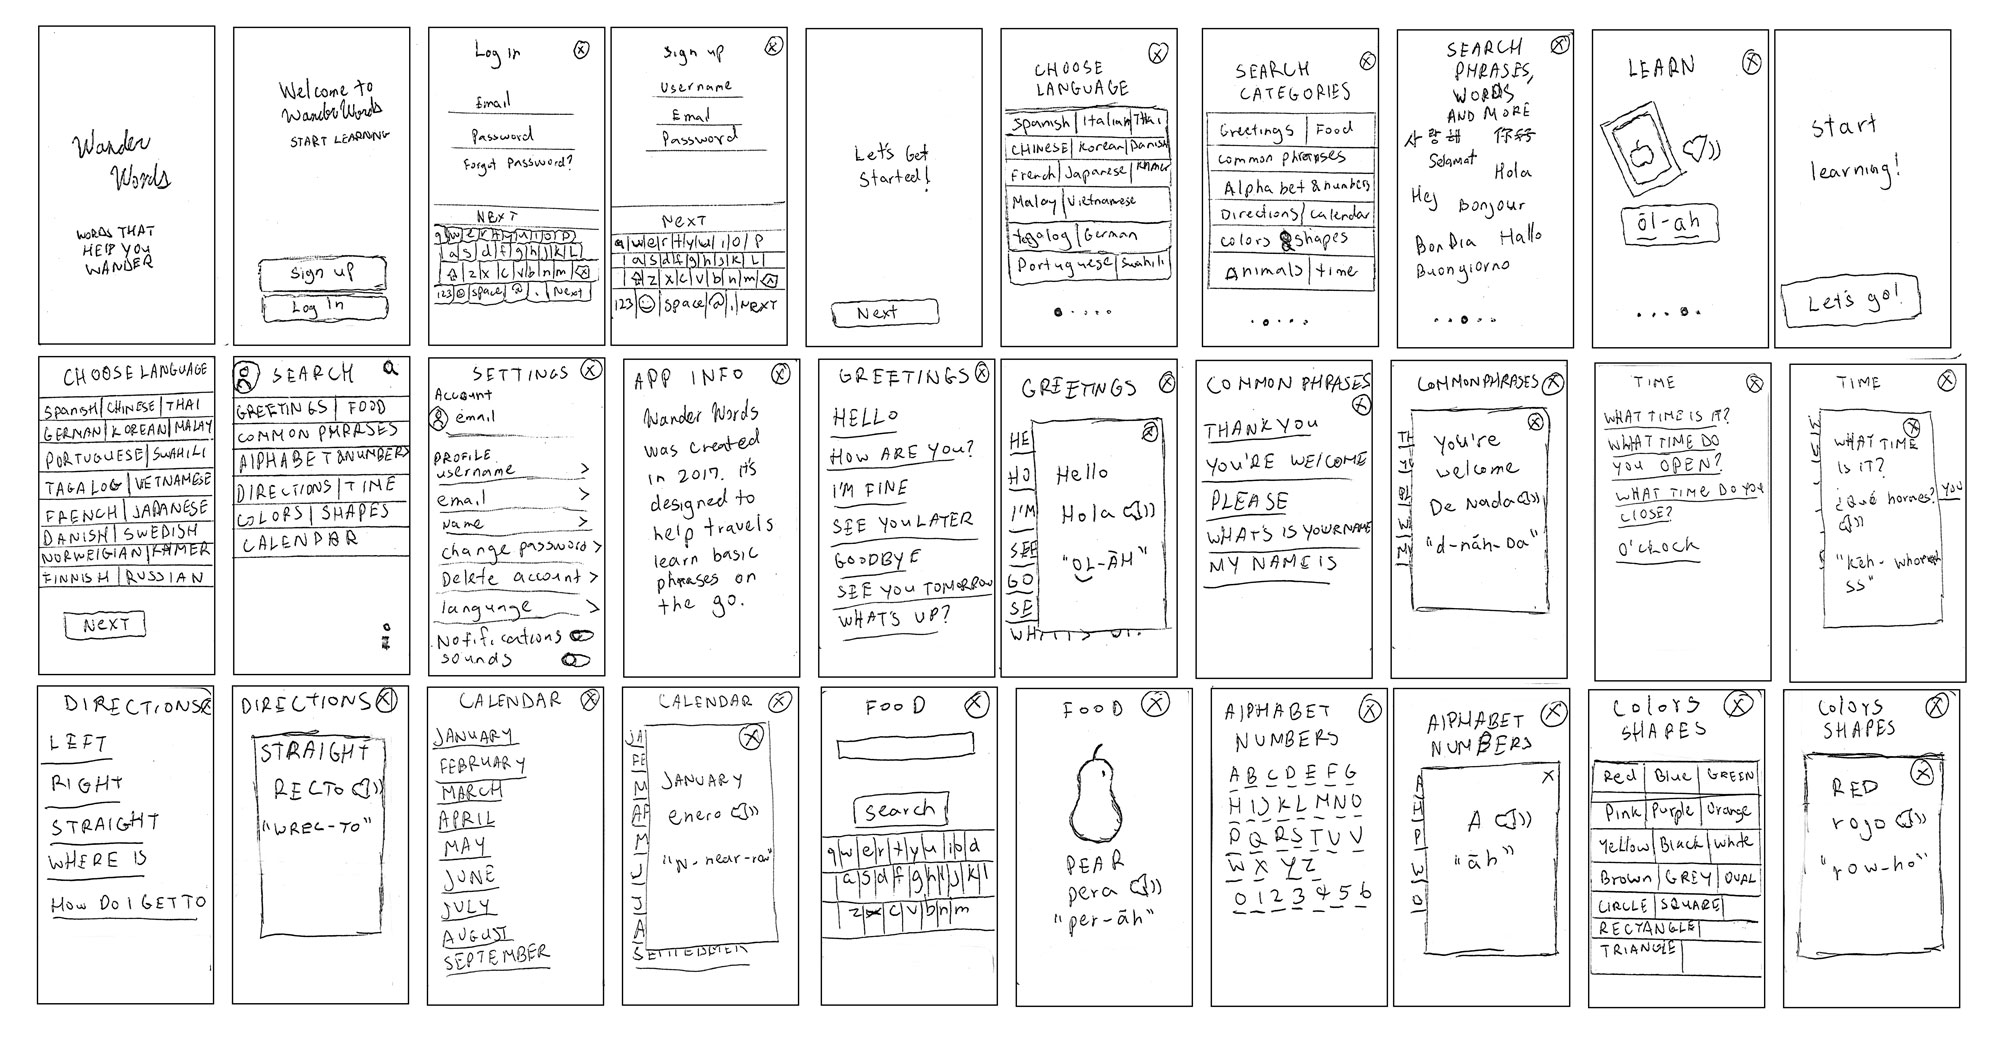 Wander
Words
WORDS THAT
HELP YOU
WANDER
Welcome to
Wander Words
START LEARNING
Sign up
Log In
Log In
X
Email
Password
Forgot Password?
NEXT
q w e r t y u i o p
a s d f g h j k L
z x c v b n m X
123 space @ . Next
Sign up
X
Username
Email
Password
NEXT
q w e r t y u i o P
a s d f g h j k L
z x c v b n m
123 space @ . NEXT
Let's Get
Started!
Next
X
CHOOSE
LANGUAGE
Spanish Italian Thai
CHINESE Korean Danish
French Japanese KHMER
Malay Vietnamese
togalog German
Portuguese Swahili
X
SEARCH
CATEGORIES
Greetings Food
common phrases
Alphabet & numbers
Directions calendar
colors & shapes
Animals time
X
SEARCH
PHRASES,
WORDS
AND MORE
사랑해
Selamat
Hola
Hej Bonjour
Bon Dia Hallo
Buongiorno
LEARN X
ōl-ah
Start
learning!
Let's go!
CHOOSE LANGUAGE
Spanish CHINESE THAI
GERMAN KOREAN MALAY
PORTUGUESE SWAHILI
TAGALOG VETNAMESE
FRENCH JAPANESE
DANISH SWEDISH
NORWEIGIAN KHMER
FINNISH RUSSIAN
NEXT
SEARCH
GREETINGS FOOD
COMMON PHRASES
AlPHABET & NUMBERS
DIRECTIONS TIME
COLORS SHAPES
CALENDAR
SETTINGS X
Account
email
PROFILE
username >
email >
Name >
change password >
Delete account >
language >
Notifications
sounds
APP INFO X
Wander Words
was created
in 2017. it's
designed to
help travels
learn basic
phrases on
the go.
GREETINGS X
HELLO
HOW ARE YOU?
I'M FINE
SEE YOU LATER
GOODBYE
SEE YOU TOMORROW
WHAT'S UP?
GREETINGS X
HE
HO
I'M
SEE
GO
SE
WHAT'S UP.
X
Hello
Hola
"OL-ĀH"
COMMON PHRASES
X
THANK YOU
YOU'RE WELCOME
PLEASE
WHAT'S IS YOUR NAME
MY NAME IS
COMMON PHRASES X
X
You're
welcome
De Nada
"d-nāh-Da"
TIME X
WHAT TIME IS IT?
WHAT TIME DO
YOU OPEN?
WHAT TIME DO YOU
CLOSE?
O'CLOCK
TIME X
X
WHAT TIME
IS IT?
YOU
DIRECTIONS X
LEFT
RIGHT
STRAIGHT
WHERE IS
HOW DO I GET TO
DIRECTIONS X
STRAIGHT
RECTO
"WREC-TO"
CALENDAR X
JANUARY
FEBRUARY
MARCH
APRIL
MAY
JUNE
JULY
AUGUST
SEPTEMBER
CALENDAR X
JA
FE
M
AP
M
J
J
A
SEPTEMBER
X
JANUARY
enero
FOOD X
search
q w e r t y u i o p
a s d f g h j k l
z x c v b n m
FOOD X
PEAR
pera
"per-āh"
AlPHABET X
NUMBERS
A B C D E F G
H I J K L M N O
P Q R S T U V
W X Y Z
0 1 2 3 4 5 6
AlPHABET X
NUMBERS
X
A
"āh"
Colors X
SHAPES
Red Blue GREEN
Pink Purple Orange
Yellow Black White
Brown GREY OVAL
CIRCLE SQUARE
RECTANGLE
TRIANGLE
Colors X
SHAPES
X
RED
rojo
"row-ho"